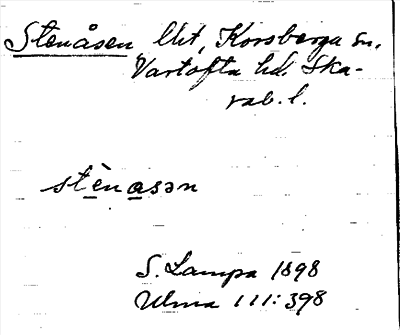 Stenåsen lht, Korsberga sn.
Vartofta hd. Ska-
rab. l.
stènasən
S. Lampa 1898
Ulma 111:398